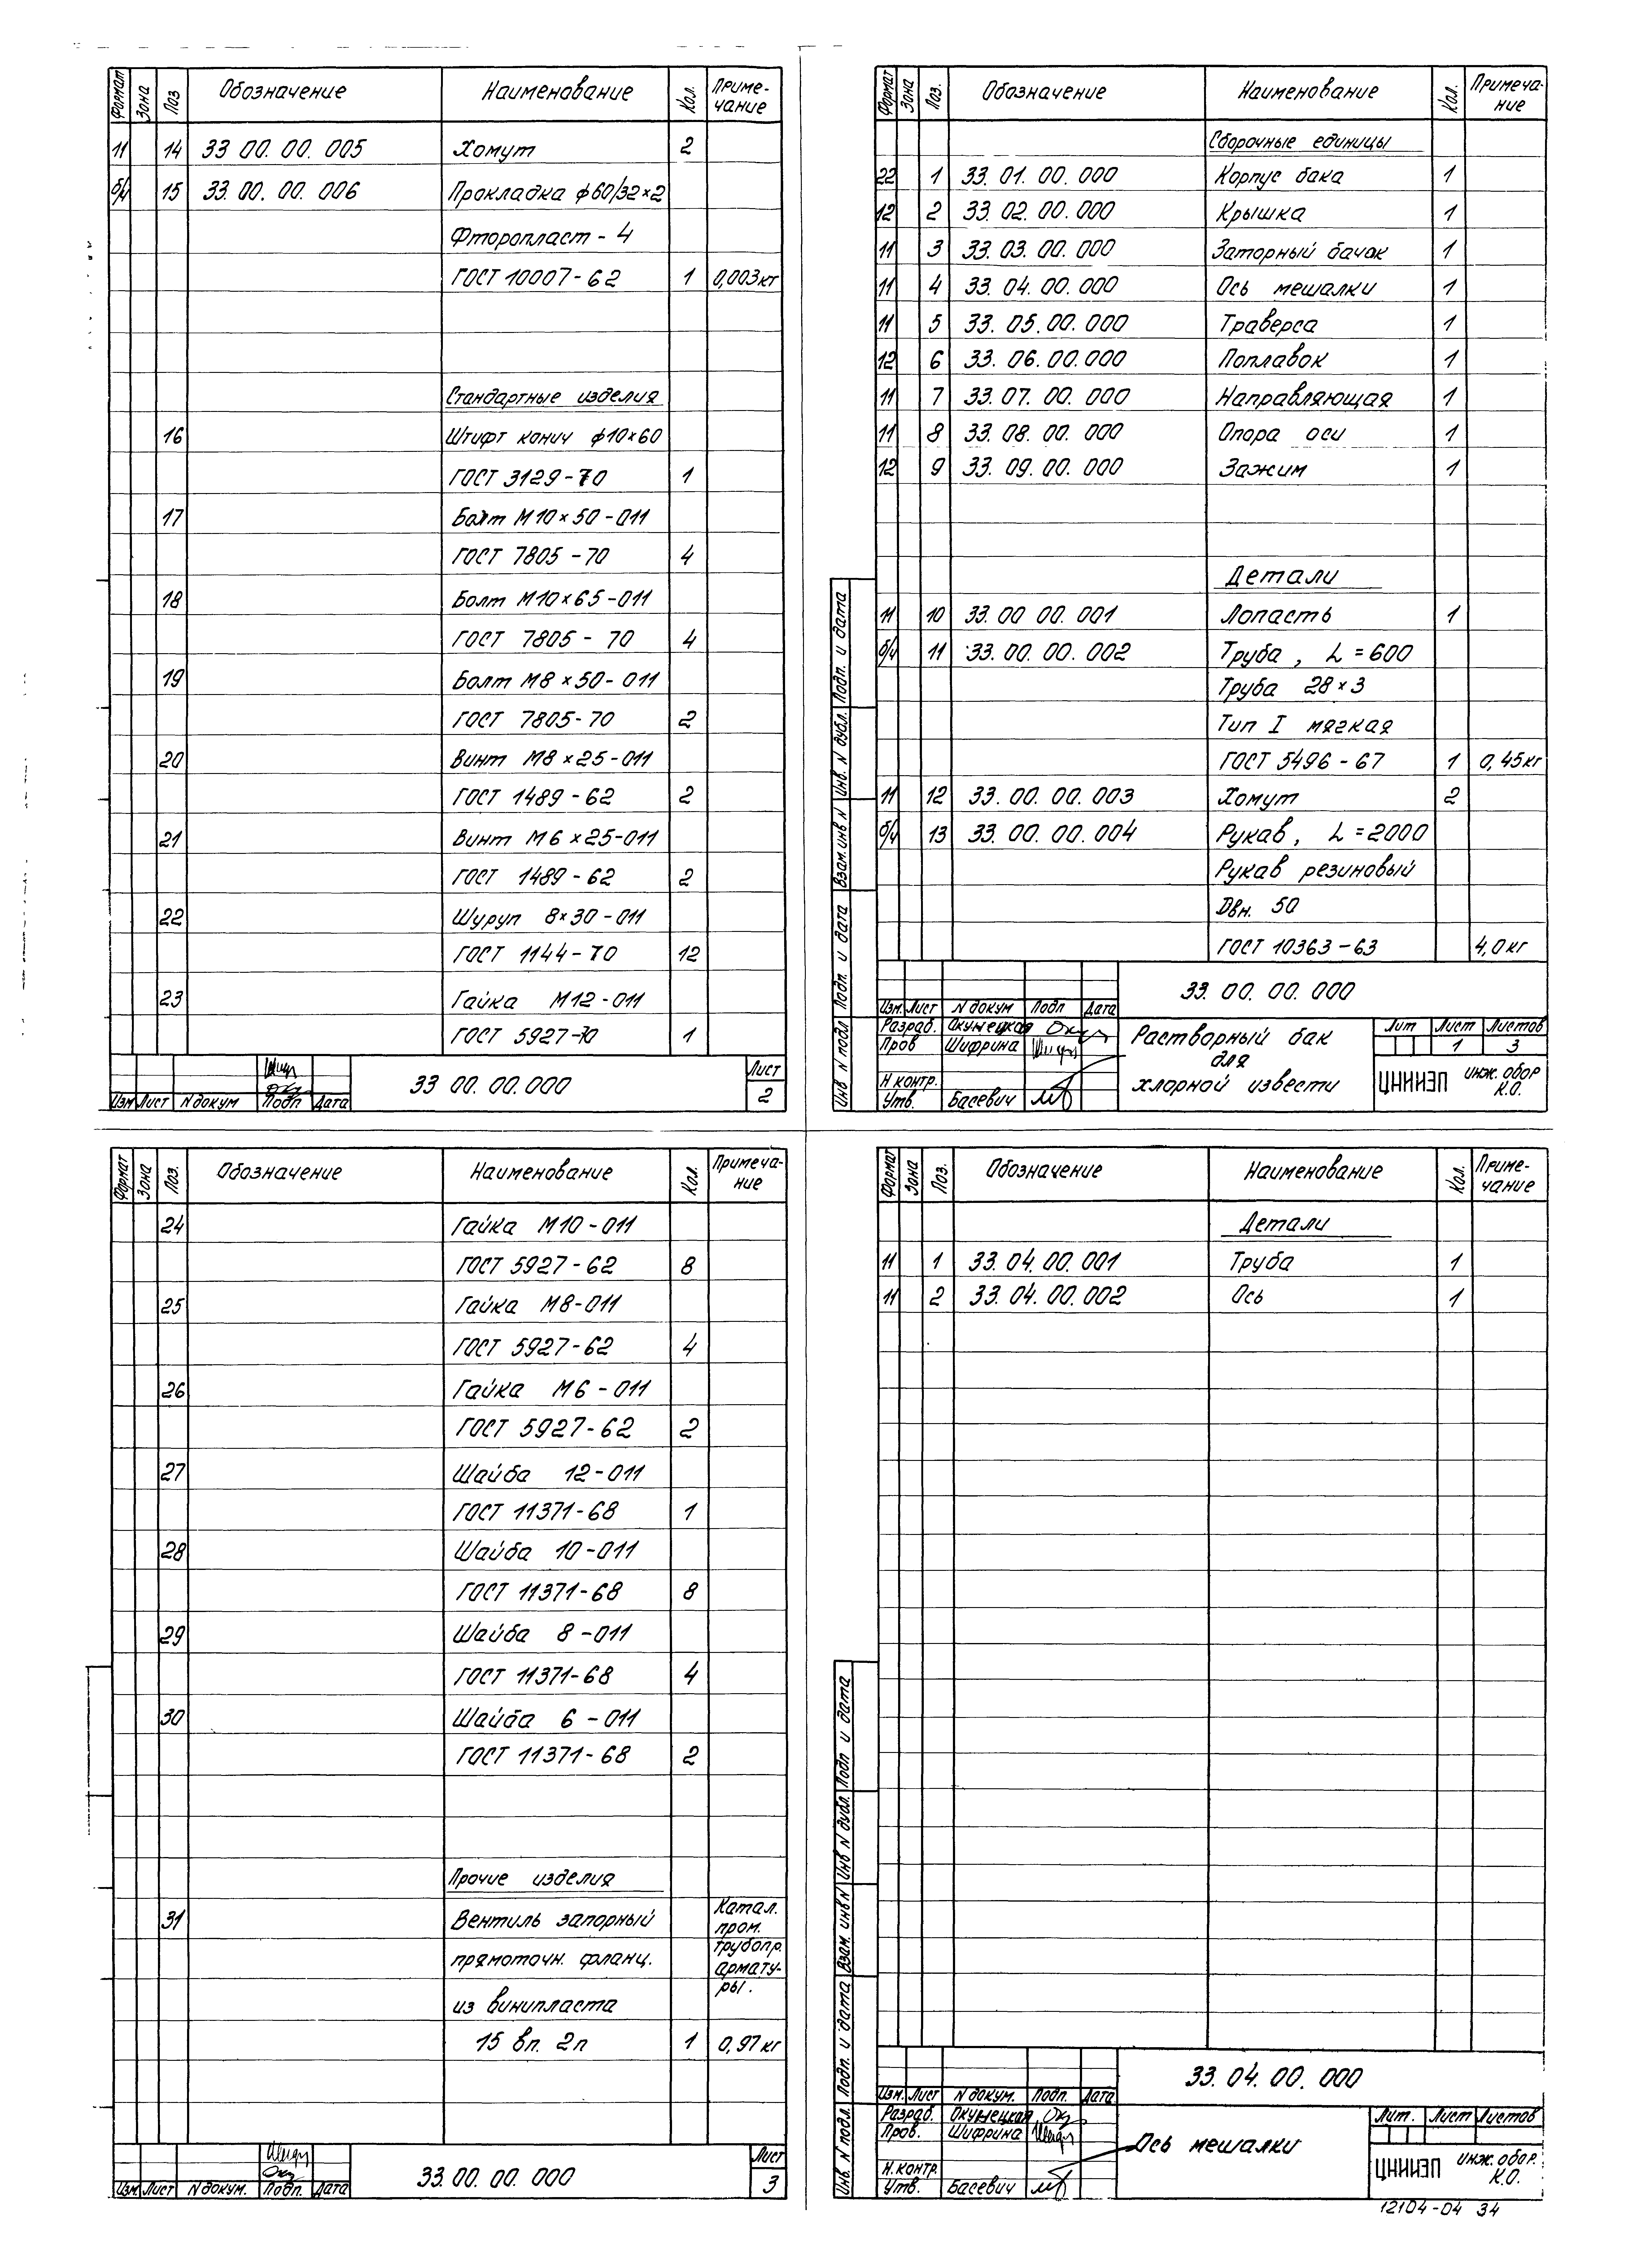 Формат Зона Поз Обозначение Наименование Кол. Приме-
чание
11 14 33 00. 00. 005 Хомут 2
б/ч 15 33. 00. 00. 006 Прокладка ф60/32×2
Фторопласт - 4
ГОСТ 10007-62 1 0,003кг
Стандартные изделия
16 Штифт конич ф10×60
ГОСТ 3129-70 1
17 Болт М10×50-011
ГОСТ 7805-70 4
18 Болт М10×65-011
ГОСТ 7805-70 4
19 Болт М8×50-011
ГОСТ 7805-70 2
20 Винт М8×25-011
ГОСТ 1489-62 2
21 Винт М6×25-011
ГОСТ 1489-62 2
22 Шуруп 8×30-011
ГОСТ 1144-70 12
23 Гайка М12-011
ГОСТ 5927-70 1
33 00. 00. 000
Лист
2
Изм Лист N докум Подп Дата
Формат Зона Поз. Обозначение Наименование Кол. Примеча-
ние
Сборочные единицы
22 1 33. 01. 00. 000 Корпус бака 1
12 2 33. 02. 00. 000 Крышка 1
11 3 33. 03. 00. 000 Заторный бачок 1
11 4 33. 04. 00. 000 Ось мешалки 1
11 5 33. 05. 00. 000 Траверса 1
12 6 33. 06. 00. 000 Поплавок 1
11 7 33. 07. 00. 000 Направляющая 1
11 8 33. 08. 00. 000 Опора оси 1
12 9 33. 09. 00. 000 Зажим 1
Детали
11 10 33. 00 00. 001 Лопасть 1
б/ч 11 33. 00. 00. 002 Труба, L=600
Труба 28×3
Тип I мягкая
ГОСТ 5496-67 1 0,45кг
11 12 33. 00. 00. 003 Хомут 2
б/ч 13 33. 00. 00. 004 Рукав, L=2000
Рукав резиновый
Dвн. 50
ГОСТ 10363-63 4,0кг
Инв N подл Подп. и дата Взам. инв N Инв. N дубл. Подп. и дата
33. 00. 00. 000
Изм. Лист N докум Подп Дата
Разраб. Окунецкая
Пров Шифрина
Н. контр.
Утв. Басевич
Растворный бак
для
хлорной извести
Лит Лист Листов
1 3
ЦНИИЭП инж. обор
К.О.
Формат Зона Поз. Обозначение Наименование Кол. Примеча-
ние
24 Гайка М10-011
ГОСТ 5927-62 8
25 Гайка М8-011
ГОСТ 5927-62 4
26 Гайка М6-011
ГОСТ 5927-62 2
27 Шайба 12-011
ГОСТ 11371-68 1
28 Шайба 10-011
ГОСТ 11371-68 8
29 Шайба 8-011
ГОСТ 11371-68 4
30 Шайба 6-011
ГОСТ 11371-68 2
Прочие изделия
31 Вентиль запорный Катал.
пром.
прямоточн. фланц. трубопр.
армату-
из винипласта ры.
15 вп. 2п 1 0,97кг
33. 00. 00. 000
Лист
3
Изм Лист N докум. Подп. Дата
Формат Зона Поз. Обозначение Наименование Кол. Приме-
чание
Детали
11 1 33. 04. 00. 001 Труба 1
11 2 33. 04. 00. 002 Ось 1
Инв. N подл. Подп. и дата Взам. инв N Инв N дубл. Подп и дата
33. 04. 00. 000
Изм. Лист N докум. Подп. Дата
Разраб. Окунецкая
Пров. Шифрина
Н. контр.
Утв. Басевич
Ось мешалки
Лит. Лист Листов
ЦНИИЭП инж. обор.
К.О.
12104-04 34